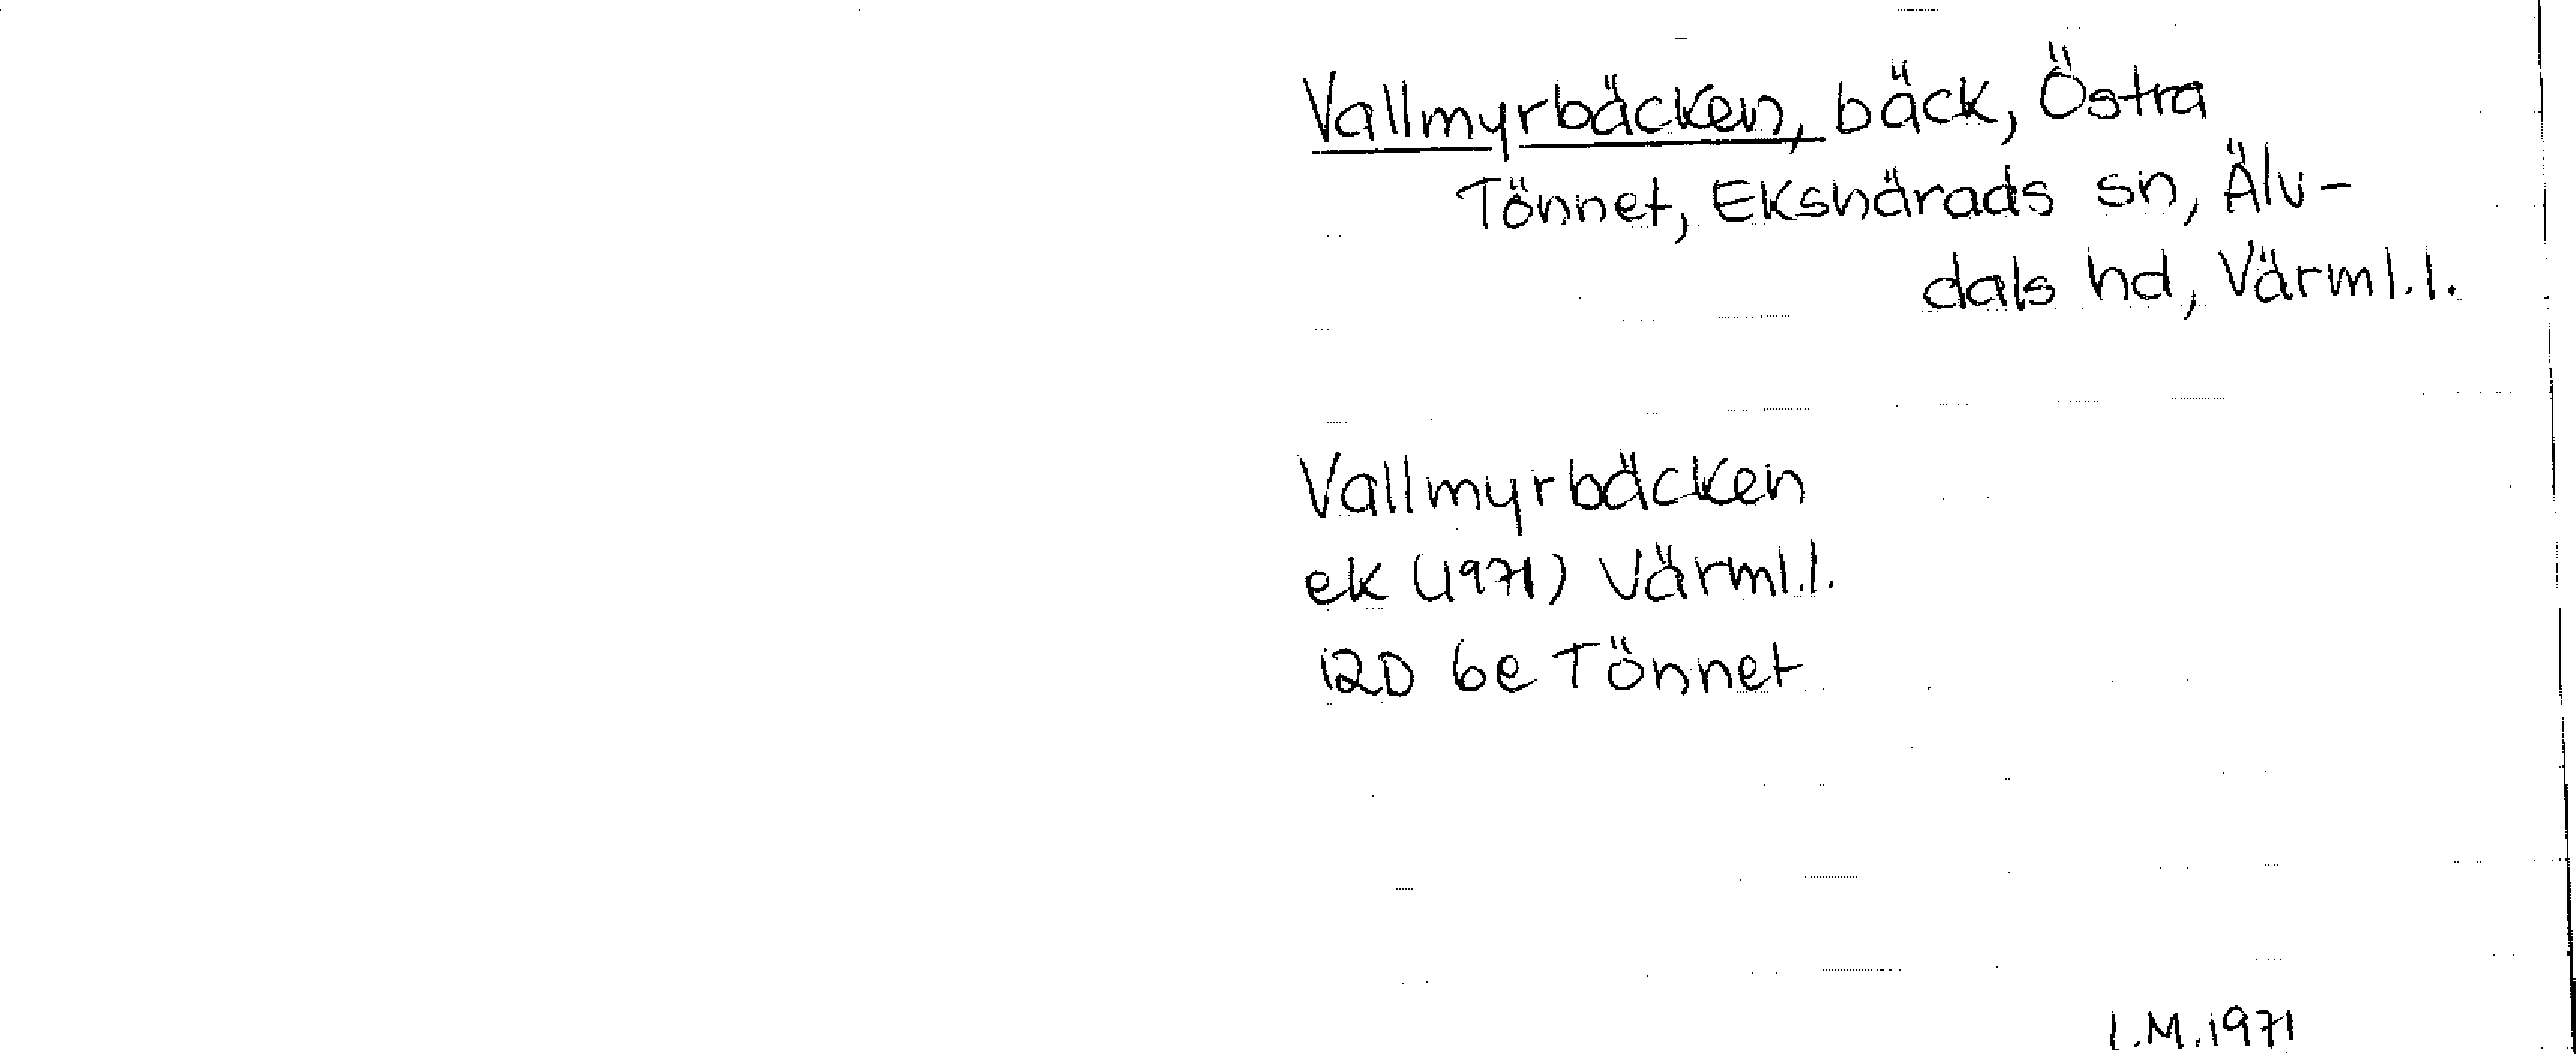 Vallmyrbäcken, bäck, Östra
Tönnet, Ekshärads sn, Älv-
dals hd, Värml.l.
Vallmyrbäcken
ek (1971) Värml.l.
12D 6e Tönnet
I.M.1971